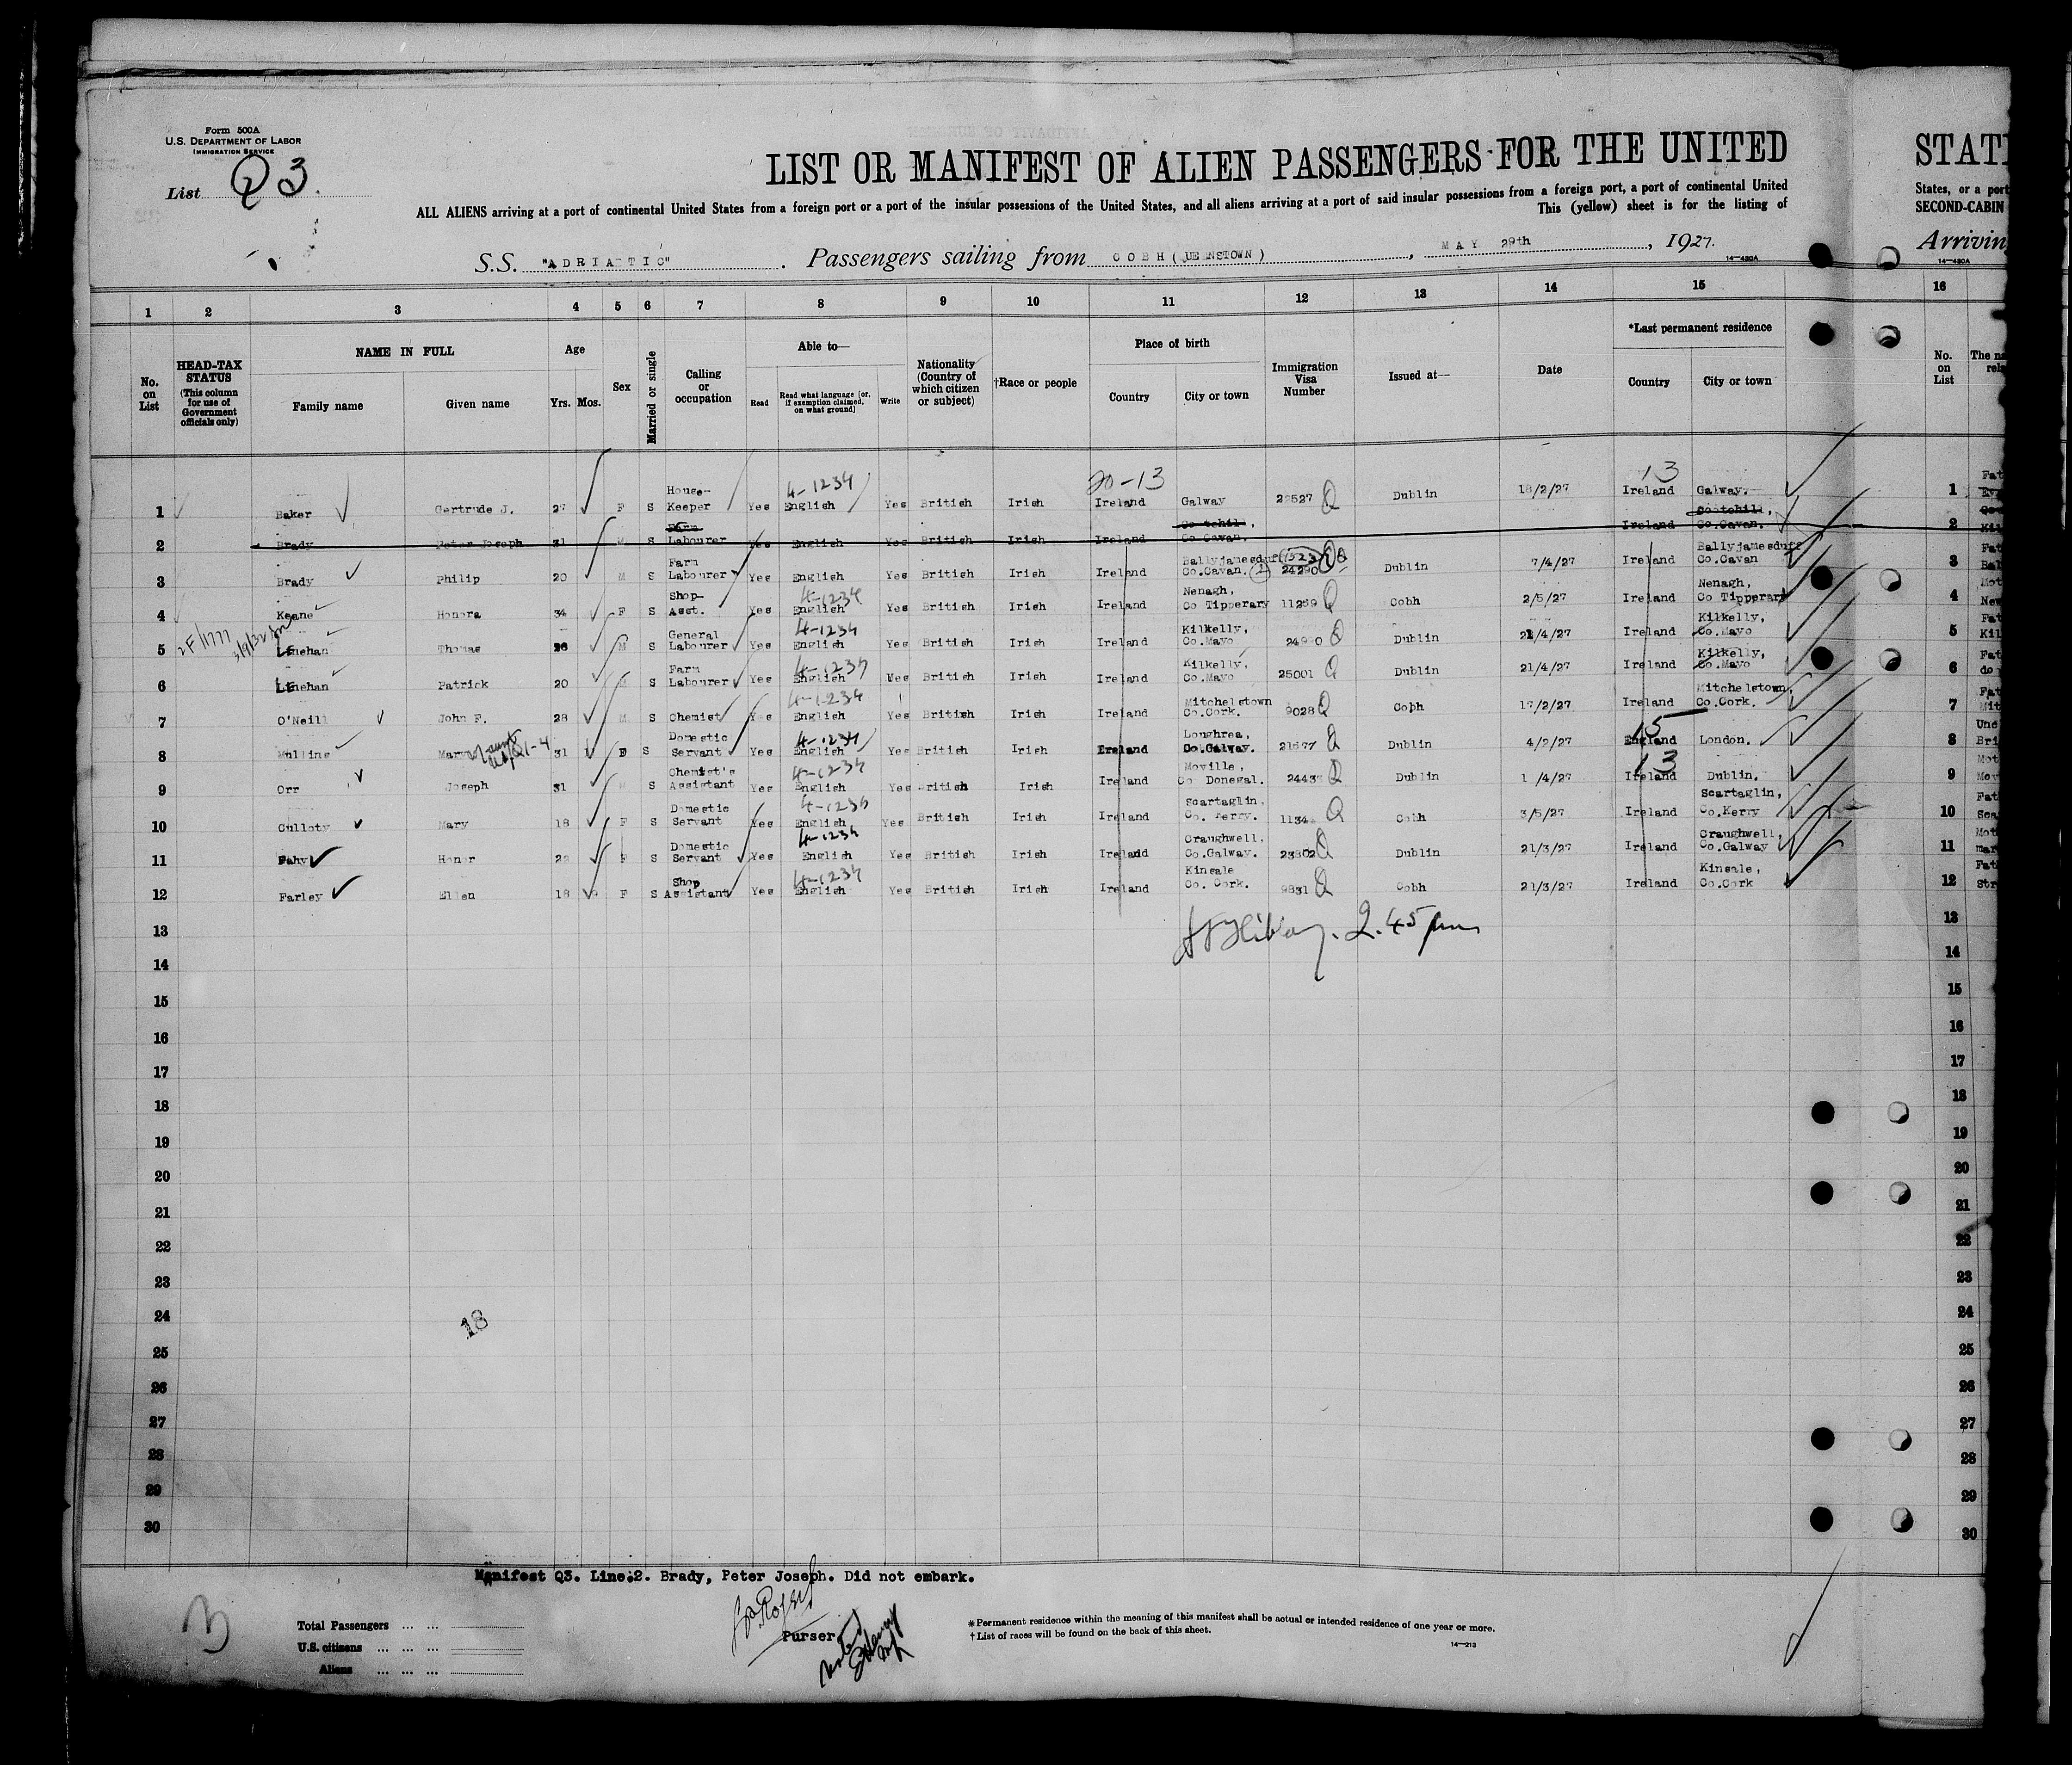 Form 500A
U.S. DEPARTMENT OF LABOR
IMMIGRATION SERVICE
List Q3.
LIST OR MANIFEST OF ALIEN PASSENGERS FOR THE UNITED
ALL ALIENS arriving at a port of continental United States from a foreign port or a port of the insular possessions of the United States, and all aliens arriving at a port of said insular possessions from a foreign port, a port of continental United
This (yellow) sheet is for the listing of
STAT
States, or a port
SECOND-CABIN
S.S. "ADRIATIC". Passengers sailing from COBH (QUEENSTOWN), MAY 29th, 1927.
Arrivin
14—480A 14—480A
1 2 3 4 5 6 7 8 9 10 11 12 13 14 15 16
HEAD-TAX STATUS (This column for use of Government officials only)
No. on List
NAME IN FULL
Family name Given name
Age
Yrs. Mos.
Sex
Married or single
Calling or occupation
Able to—
Read Read what language (or, if exemption claimed, on what ground) Write
Nationality (Country of which citizen or subject)
†Race or people
Place of birth
Country City or town
Immigration Visa Number
Issued at—
Date
*Last permanent residence
Country City or town
No. on List
20-13 13
1 Baker Gertrude J. 27 F S House-Keeper Yes English 4-1234 Yes British Irish Ireland Galway Q Dublin 18/2/27 Ireland Galway. 1
2 Brady Peter Joseph 31 M S Farm Labourer Yes English Yes British Irish Ireland Cootehill, Co Cavan. Ireland Cootehill, Co.Cavan. 2
3 Brady Philip 20 M S Farm Labourer Yes English Yes British Irish Ireland Ballyjamesduff Co.Cavan. 24290 Q Dublin 7/4/27 Ireland Ballyjamesduff Co.Cavan 3
4 Keane Honora 34 F S Shop-Asst. Yes English 4-1234 Yes British Irish Ireland Nenagh, Co Tipperary 11259 Q Cobh 2/5/27 Ireland Nenagh, Co Tipperary 4
5 2F/1777 Lenehan Thomas 26 M S General Labourer Yes English 4-1234 Yes British Irish Ireland Kilkelly, Co.Mayo Q Dublin /4/27 Ireland Kilkelly, Co.Mayo 5
6 Lenehan Patrick 20 M S Farm Labourer Yes English 4-1234 Yes British Irish Ireland Kilkelly, Co.Mayo 25001 Q Dublin 21/4/27 Ireland Kilkelly, Co.Mayo 6
7 O'Neill John F. 28 M S Chemist Yes English 4-1234 Yes British Irish Ireland Mitchelstown Co.Cork. 9028 Q Cobh 17/2/27 Ireland Mitchelstown, Co.Cork. 7
15
8 Mullins Mary Q1-4 31 F S Domestic Servant Yes English 4-1234 Yes British Irish Ireland Loughrea, Co.Galway. Q Dublin 4/2/27 England London. 8
13
9 Orr Joseph 31 M S Chemist's Assistant Yes English 4-1234 Yes British Irish Ireland Moville, Co Donegal. Q Dublin /4/27 Ireland Dublin. 9
10 Culloty Mary 18 F S Domestic Servant Yes English 4-1234 Yes British Irish Ireland Scartaglin, Co. Kerry. Q Cobh 3/5/27 Ireland Scartaglin, Co.Kerry 10
11 Fahy Honor 22 F S Domestic Servant Yes English 4-1234 Yes British Irish Ireland Craughwell, Co.Galway. 23802 Q Dublin 21/3/27 Ireland Craughwell, Co.Galway 11
12 Farley Ellen 18 F S Shop Assistant Yes English 4-1234 Yes British Irish Ireland Kinsale Co. Cork. 9831 Q Cobh 21/3/27 Ireland Kinsale, Co.Cork 12
2.45 pm
13 13
14 14
15 15
16 16
17 17
18 18
19 19
20 20
21 21
22 22
23 23
24 18 24
25 25
26 26
27 27
28 28
29 29
30 30
Manifest Q3. Line:2. Brady, Peter Joseph. Did not embark.
Total Passengers
U.S. citizens
Aliens
Purser
*Permanent residence within the meaning of this manifest shall be actual or intended residence of one year or more.
†List of races will be found on the back of this sheet.
14—213